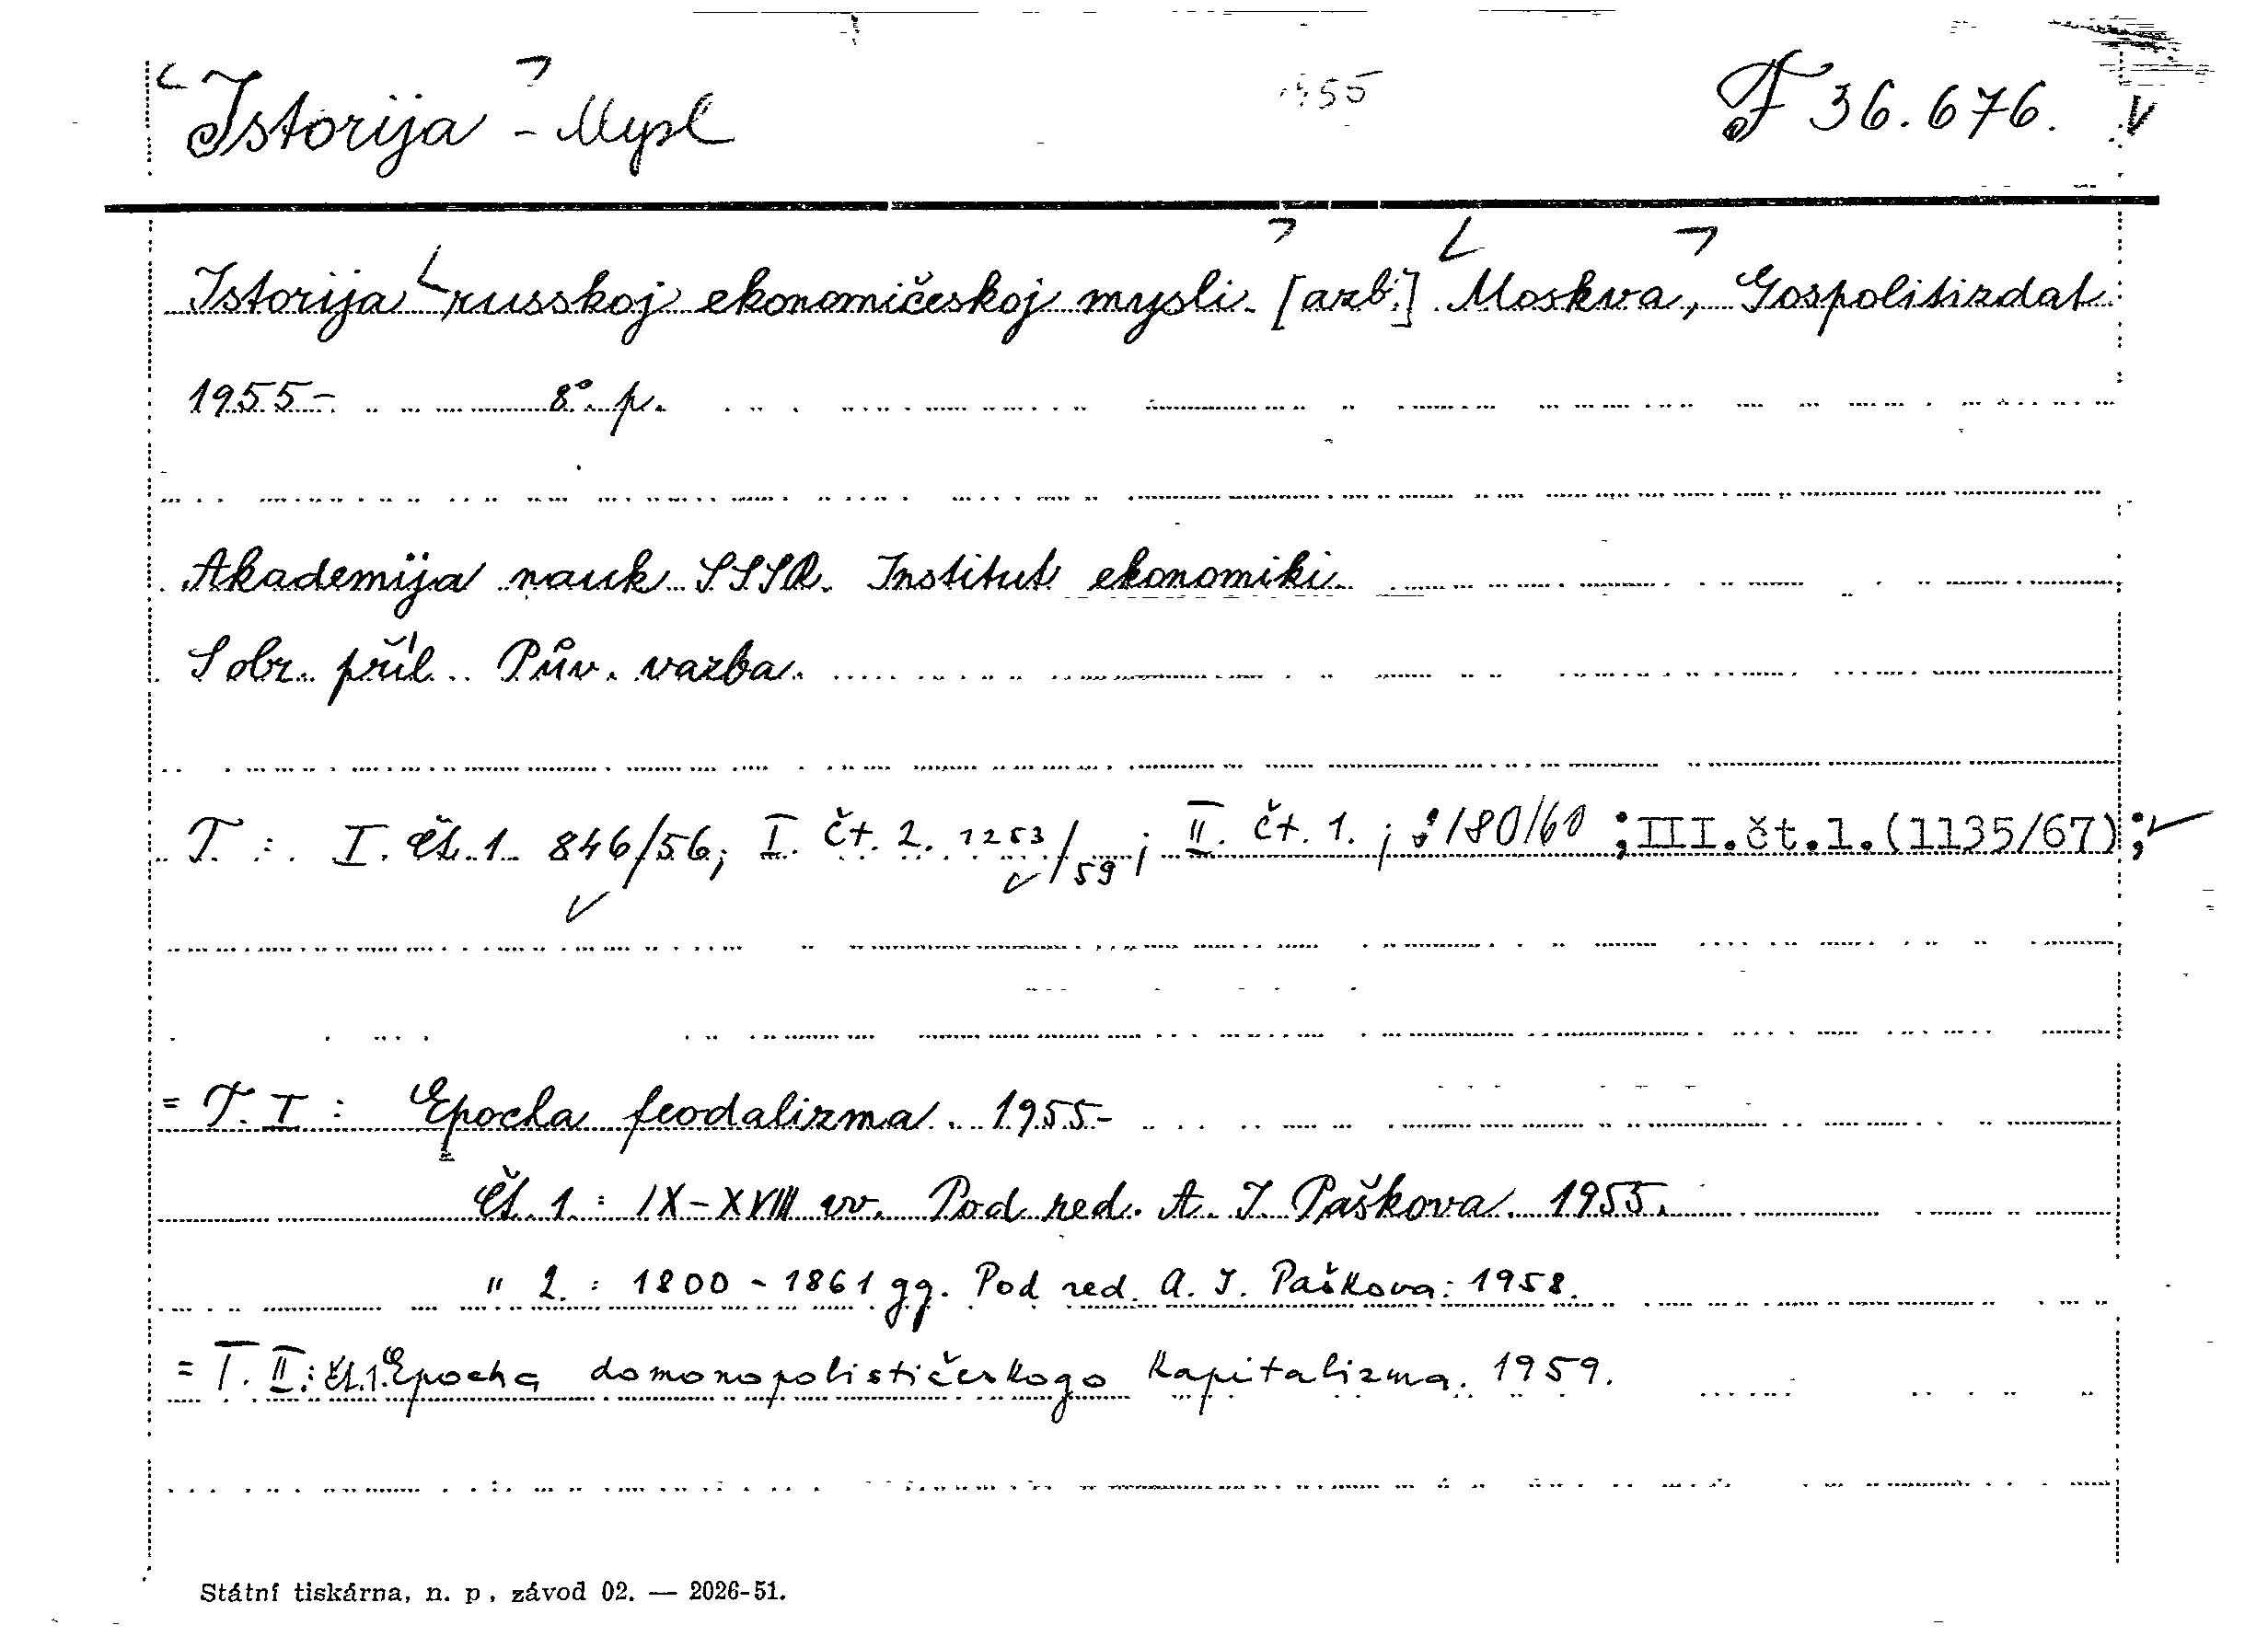 Istorija - Mysl 1955 F 36.676. V
Istorija russkoj ekonomičeskoj mysli. [azb.] Moskva, Gospolitizdat
1955- 8° p.
Akademija nauk SSSR. Institut ekonomiki
S obr. příl. Pův. vazba.
T.: I. Čt. 1. 846/56; I. čt. 2. 1253/59; II. čt. 1.; 180/60 ;III.čt.1.(1135/67);
= T. I: Epocha feodalizma. 1955-
Čt. 1.: IX-XVIII vv. Pod red. A. I. Paškova. 1955.
" 2.: 1800-1861 gg. Pod red. A. I. Paškova: 1958.
= T. II: čt.1. Epocha domonopolističeskogo kapitalizma. 1959.
Státní tiskárna, n. p, závod 02. — 2026-51.